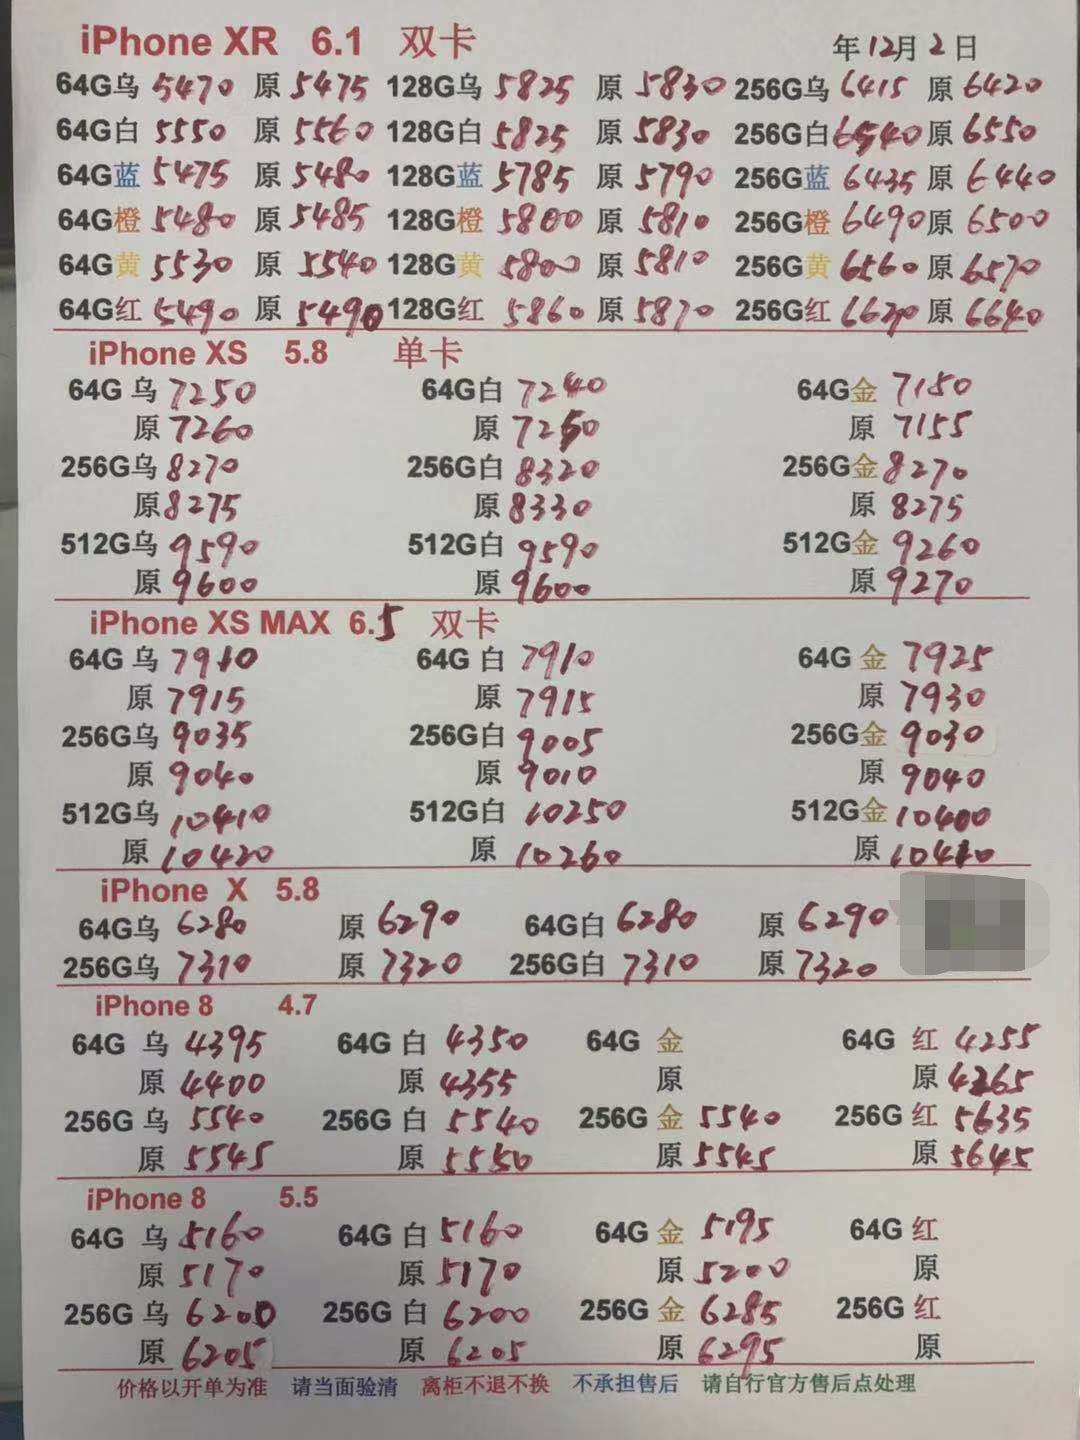 iPhone XR 6.1 双卡 年12月2日
64G乌 5470 原 5475 128G乌 5825 原 5830 256G乌 6415 原 6420
64G白 5550 原 5560 128G白 5825 原 5830 256G白 6540 原 6550
64G蓝 5475 原 5480 128G蓝 5785 原 5790 256G蓝 6435 原 6440
64G橙 5480 原 5485 128G橙 5800 原 5810 256G橙 6490 原 6500
64G黄 5530 原 5540 128G黄 5800 原 5810 256G黄 6560 原 6570
64G红 5490 原 5490 128G红 5860 原 5870 256G红 6620 原 6640
iPhone XS 5.8 单卡
64G 乌 7250 64G白 7240 64G金 7150
原 7260 原 7250 原 7155
256G乌 8270 256G白 8320 256G金 8270
原 8275 原 8330 原 8275
512G乌 9590 512G白 9590 512G金 9260
原 9600 原 9600 原 9270
iPhone XS MAX 6.5 双卡
64G 乌 7910 64G 白 7910 64G 金 7925
原 7915 原 7915 原 7930
256G乌 9035 256G白 9005 256G金 9030
原 9040 原 9010 原 9040
512G乌 10410 512G白 10250 512G金 10400
原 10420 原 10260 原 10410
iPhone X 5.8
64G乌 6280 原 6290 64G白 6280 原 6290
256G乌 7310 原 7320 256G白 7310 原 7320
iPhone 8 4.7
64G 乌 4395 64G 白 4350 64G 金 64G 红 4255
原 4400 原 4355 原 原 4265
256G 乌 5540 256G 白 5540 256G 金 5540 256G 红 5635
原 5545 原 5550 原 5545 原 5645
iPhone 8 5.5
64G 乌 5160 64G 白 5160 64G 金 5195 64G 红
原 5170 原 5170 原 5200 原
256G 乌 6200 256G 白 6200 256G 金 6285 256G 红
原 6205 原 6205 原 6295 原
价格以开单为准 请当面验清 离柜不退不换 不承担售后 请自行官方售后点处理